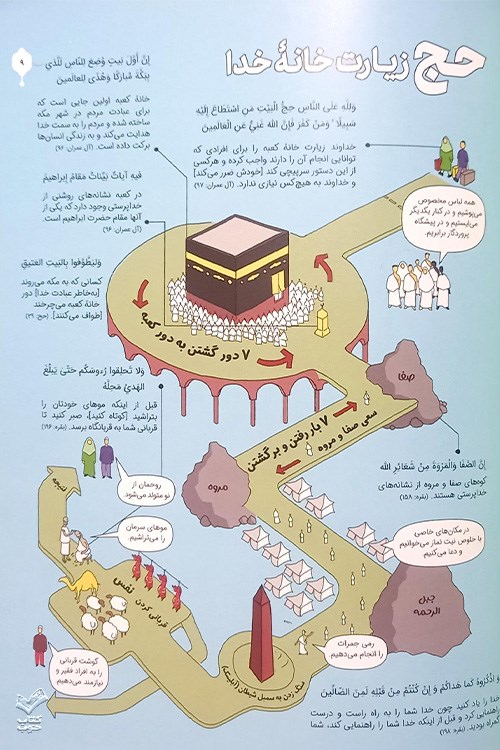 حج زیارت خانهٔ خدا
۹
وَلِلَّهِ عَلَى النَّاسِ حِجُّ الْبَيْتِ مَنِ اسْتَطَاعَ إِلَيْهِ
سَبِيلًا ۚ وَمَنْ كَفَرَ فَإِنَّ اللَّهَ غَنِيٌّ عَنِ الْعَالَمِينَ
خداوند زیارت خانهٔ کعبه را برای افرادی که
توانایی انجام آن را دارند واجب کرده و هرکسی
از این دستور سرپیچی کند [خودش ضرر می‌کند]
و خداوند به هیچ‌کس نیازی ندارد. (آل عمران: ۹۷)
إِنَّ أَوَّلَ بَيْتٍ وُضِعَ لِلنَّاسِ لَلَّذِي
بِبَكَّةَ مُبَارَكًا وَهُدًى لِلْعَالَمِينَ
خانهٔ کعبه اولین جایی است که
برای عبادت مردم در شهر مکه
ساخته شده و مردم را به سمت خدا
هدایت می‌کند و به زندگی انسان‌ها
برکت داده است. (آل عمران: ۹۶)
فِيهِ آيَاتٌ بَيِّنَاتٌ مَقَامُ إِبْرَاهِيمَ
در کعبه نشانه‌های روشنی از
خداپرستی وجود دارد که یکی از
آنها مقام حضرت ابراهیم است.
(آل عمران: ۹۶)
وَلْيَطَّوَّفُوا بِالْبَيْتِ الْعَتِيقِ
کسانی که به مکه می‌روند
[به‌خاطر عبادت خدا] دور
خانهٔ کعبه می‌چرخند
[طواف می‌کنند]. (حج: ۲۹)
همه لباس مخصوص
می‌پوشیم و در کنار یکدیگر
می‌ایستیم و در پیشگاه
پروردگار برابریم.
۷ دور گشتن به دور کعبه
صفا
سعی صفا و مروه
۷ بار رفتن و برگشتن
مروه
وَلَا تَحْلِقُوا رُءُوسَكُمْ حَتَّىٰ يَبْلُغَ
الْهَدْيُ مَحِلَّهُ
قبل از اینکه موهای خودتان را
بتراشید [کوتاه کنید]، صبر کنید تا
قربانی شما به قربانگاه برسد. (بقره: ۱۹۶)
إِنَّ الصَّفَا وَالْمَرْوَةَ مِنْ شَعَائِرِ اللَّهِ
کوه‌های صفا و مروه از نشانه‌های
خداپرستی هستند. (بقره: ۱۵۸)
در مکان‌های خاصی
با خلوص نیت نماز می‌خوانیم
و دعا می‌کنیم
جبل
الرحمه
رمی جمرات
را انجام می‌دهیم
سنگ زدن به سمبل شیطان (ابلیسک)
قربانی کردن نفس
موهای سرمان
را می‌تراشیم.
روحمان از
نو متولد می‌شود
نتیجه
گوشت قربانی
را به افراد فقیر و
نیازمند می‌دهیم
وَاذْكُرُوهُ كَمَا هَدَاكُمْ وَإِنْ كُنْتُمْ مِنْ قَبْلِهِ لَمِنَ الضَّالِّينَ
خدا را یاد کنید چون خدا شما را به راه راست و درست
راهنمایی کرد و قبل از اینکه خدا شما را راهنمایی کند، شما
گمراه بودید. (بقره: ۱۹۸)